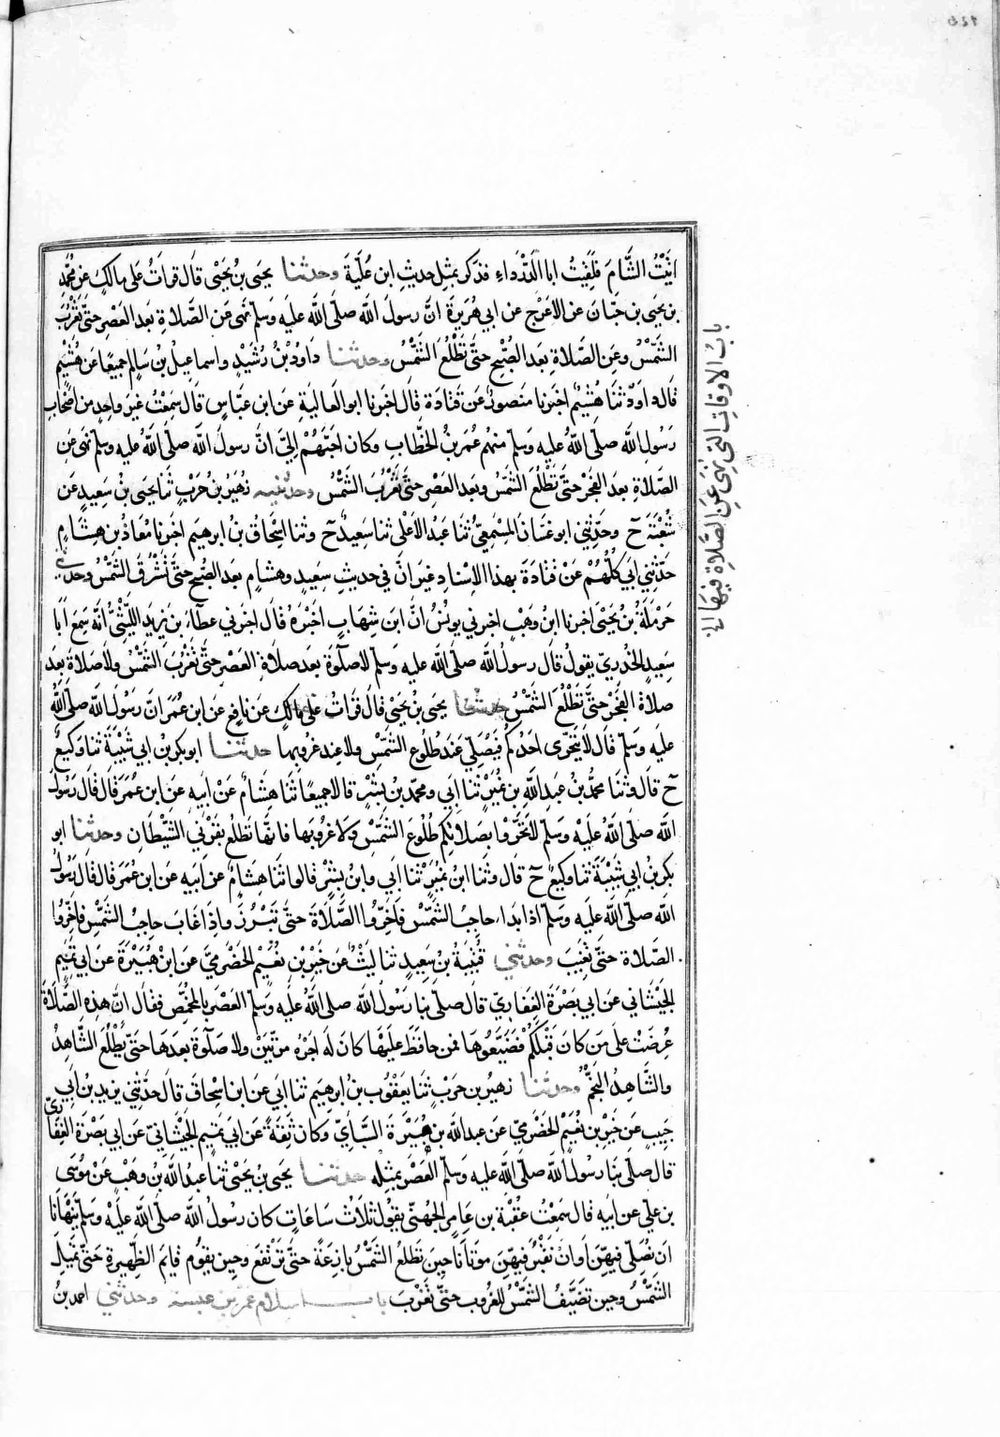 اتيتُ الشَّامَ فلقيتُ ابا الدَّرْدَاءِ فذكر بمثل حديثِ ابن عُليَّةَ وحدثنا يحيى بن يحيى قال قراتُ على مالكٍ عن محمَّد
بن يحيى بن حبَّانَ عن الاعرج عن ابي هُرَيرةَ انَّ رسولَ الله صلى الله عليه وسلم نهى عن الصَّلاةِ بعد العصرِ حتى تغرُبَ
الشمسُ وعن الصَّلاة بعد الصُّبح حتى تطلُعَ الشمسُ وحدثنا داودُ بنُ رُشيدٍ واسماعيلُ بن سالمٍ جميعًا عن هُشيم
قال داودُ ثنا هُشيمٌ اخبرنا منصورٌ عن قتادة قال اخبرنا ابو العاليةِ عن ابن عبَّاسٍ قال سمعتُ غير واحدٍ من اصحابِ
رسُولِ الله صلى اللهُ عليه وسلم منهم عُمرُ بنُ الخطَّابِ وكان احبَّهُمْ اليَّ انَّ رسولَ الله صلى اللهُ عليه وسلم نهى عن
الصَّلاةِ بعد الفجر حتى تطلعَ الشمسُ وبعد العصر حتى تغربَ الشمسُ وحدثنيه زُهيرُ بن حربٍ ثنا يحيى بنُ سعيدٍ عن
شُعْبَةَ ح وحدثني ابو غسَّانَ المِسْمَعِيُّ ثنا عبدُ الاعلى ثنا سعيدٌ ح وثنا اسحاقُ بنُ ابرهيم اخبرنا مُعاذُ بن هِشَامٍ
حدثني ابي كلُّهُمْ عن قتادةَ بهذا الاسنادِ غير انَّ في حديثِ سعيدٍ وهشامٍ بعد الصُّبح حتى تشرُقَ الشمسُ وحدثني
حرملةُ بنُ يحيى اخبرنا ابن وهْبٍ اخبرني يونسُ انَّ ابن شهابٍ اخبرهُ قال اخبرني عطاءُ بن يزيد الليثيُّ انه سمع ابا
سعيدٍ الخُدريَّ يقولُ قال رسولُ الله صلى الله عليه وسلم لا صلوةَ بعد صلاة العصر حتى تغرُبَ الشمسُ ولا صلاةَ بعد
صلاة الفجر حتى تطلُعَ الشمسُ حدثنا يحيى بن يحيى قال قراتُ على مالكٍ عن نافعٍ عن ابن عُمرَ انَّ رسُولَ الله صلى اللهُ
عليه وسلم قال لا يتحرى احدُكُم فيُصلي عند طُلوعِ الشمس ولا عند غروبها حدثنا ابو بكر بنُ ابي شيبة ثنا وكيعٌ
ح قال وثنا محمدُ بنُ عبد اللهِ بن نُمَيرٍ ثنا ابي ومحمدُ بن بشرٍ قالا جميعًا ثنا هشامٌ عن ابيه عن ابن عُمر قال قال رسُولُ
الله صلى اللهُ عليه وسلم لا تحرَّوْا بصلاتكم طُلُوعَ الشمسِ ولا غرُوبها فانها تطلُع بقرْنَي الشيْطانِ وحدثنا ابو
بكر بنُ ابي شيبةَ ثنا وكيعٌ ح قال وثنا ابن نُميرٍ ثنا ابي وابنُ بشرٍ قالوا ثنا هشامٌ عن ابيه عن ابن عُمرَ قال قال رسولُ
الله صلى الله عليه وسلم اذا بدا حاجبُ الشمسِ فاخِّرُوا الصَّلاةَ حتى تبرُزَ واذا غابَ حاجبُ الشمسِ فاخِّرُوا
الصَّلاةَ حتى تغيبَ وحدثني قُتيبةُ بن سعيدٍ ثنا ليثٌ عن خير بن نُعيم الحضرميِّ عن ابن هُبيْرَةَ عن ابي تميم
الجيشاني عن ابي بَصْرَةَ الغفاريِّ قال صلى بنا رسُولُ الله صلى اللهُ عليه وسلم العصرَ بالمخمَّصِ فقال انَّ هذه الصَّلاةَ
عُرضَتْ على مَن كان قبلكُم فضيَّعُوها فمن حافظ عليها كان له اجرهُ مرَّتين ولا صلوةَ بعدها حتى يطلُعَ الشاهدُ
والشاهدُ النجمُ وحدثنا زهيرُ بن حربٍ ثنا يعقوب بنُ ابرهيم ثنا ابي عن ابن اسحاقَ قال حدثني يزيدُ بن ابي
حبيبٍ عن خير بن نُعيمٍ الحضرميِّ عن عبد الله بن هُبيرة السَّبايِّ وكان ثقةً عن ابي تميم الجيشانيِّ عن ابي بصْرَة الغِفاريِّ
قال صلى بنا رسولُ الله صلى اللهُ عليه وسلم العصرَ بمثله حدثنا يحيى بنُ يحيى ثنا عبدُ الله بن وهْبٍ عن مُوسى
بن عليٍّ عن ابيه قال سمعتُ عقبة بن عامرٍ الجهنيَّ يقولُ ثلاثُ ساعاتٍ كان رسولُ الله صلى الله عليه وسلم ينهانا
ان نُصلي فيهنَّ او ان نقبُرَ فيهنَّ موتانا حين تطلعُ الشمسُ بازغةً حتى ترتفعَ وحين يقومُ قايمُ الظهيرةِ حتى تميلَ
الشمسُ وحين تضيَّفُ الشمسُ للغروب حتى تغربَ باب اسلام عمرو بن عبسة وحدثني احمد بنُ
بابُ الاوقاتِ التى نُهِىَ عَنِ الصَّلاةِ فيها